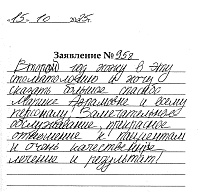 15. 10
Заявление №958
Второй год хожу в эту
стоматологию и хочу
сказать большое спасибо
Марине и всему
персоналу! Замечательное
обслуживание, прекрасное
отношение к пациентам
и очень качественное
лечение и результат!